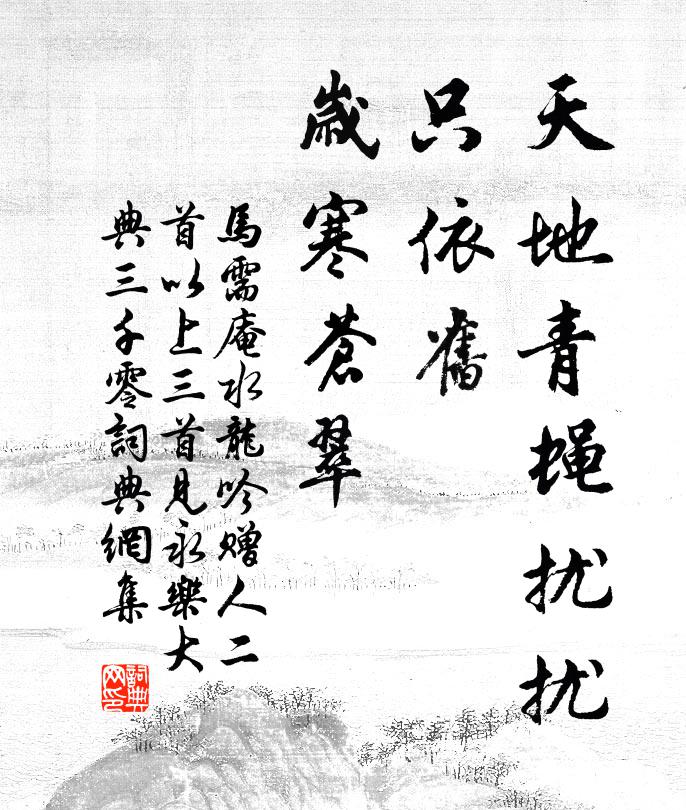 天地青蝇扰扰
只依舊
歲寒蒼翠
馬需庵水龍吟贈人二
首以上三首見永樂大
典三千零詞典網集
詞典
网印